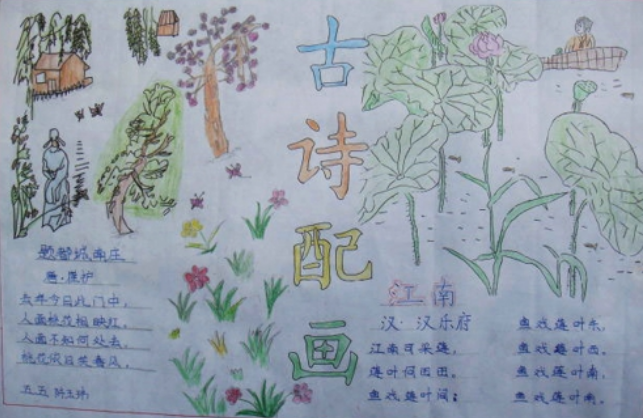 古诗配画
题都城南庄
唐·崔护
去年今日此门中,
人面桃花相映红。
人面不知何处去,
桃花依旧笑春风。
五五
江南
汉·汉乐府
江南可采莲,
莲叶何田田。
鱼戏莲叶间;
鱼戏莲叶东,
鱼戏莲叶西,
鱼戏莲叶南,
鱼戏莲叶南。